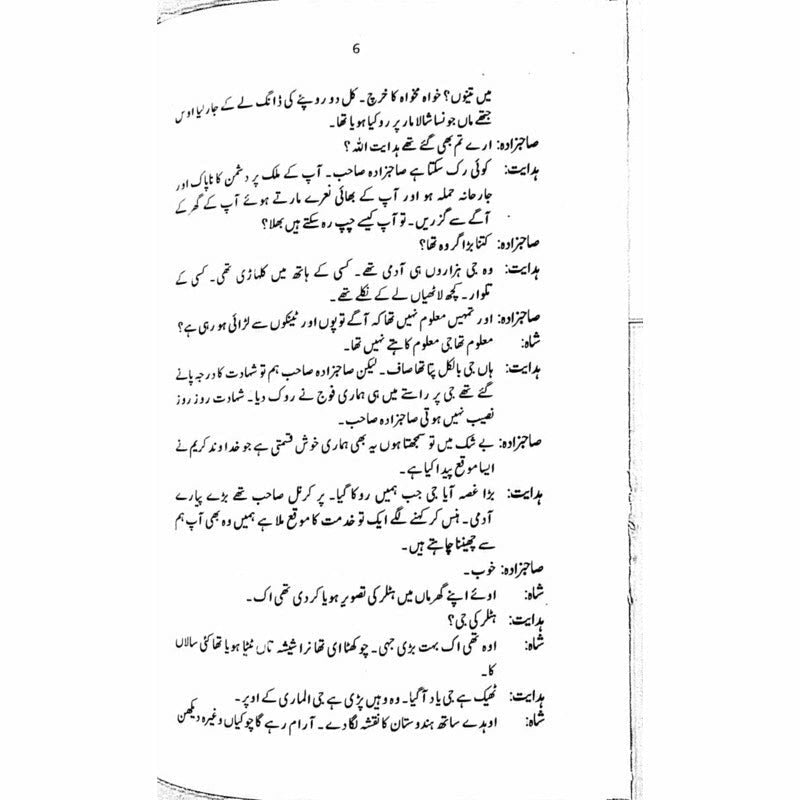 6
میں تینوں؟ خواہ مخواہ کا خرچ۔ کل دو روپئے کی ڈانگ لے کے جار لیا اوس
جتھے ماں جونسا شالا مار پر روکیا ہویا تھا۔
صاحبزادہ: ارے تم بھی گئے تھے ہدایت اللہ؟
ہدایت: کوئی رک سکتا ہے صاحبزادہ صاحب۔ آپ کے ملک پر دشمن کا ناپاک اور
جارحانہ حملہ ہو اور آپ کے بھائی نعرے مارتے ہوئے آپ کے گھر کے
آگے سے گزریں۔ تو آپ کیسے چپ رہ سکتے ہیں بھلا؟
صاحبزادہ: کتنا بڑا گروہ تھا؟
ہدایت: وہ جی ہزاروں ہی آدمی تھے۔ کسی کے ہاتھ میں کلہاڑی تھی۔ کسی کے
تلوار۔ کچھ لاٹھیاں لے کے نکلے تھے۔
صاحبزادہ: اور تمہیں معلوم نہیں تھا کہ آگے توپوں اور ٹینکوں سے لڑائی ہو رہی ہے؟
شاہ: معلوم تھا جی معلوم کاہتے نہیں تھا۔
ہدایت: ہاں جی بالکل پتا تھا صاف۔ لیکن صاحبزادہ صاحب ہم تو شہادت کا درجہ پانے
گئے تھے جی پر راستے میں ہی ہماری فوج نے روک دیا۔ شہادت روز روز
نصیب نہیں ہوتی صاحبزادہ صاحب۔
صاحبزادہ: بے شک میں تو سمجھتا ہوں یہ بھی ہماری خوش قسمتی ہے جو خداوند کریم نے
ایسا موقع پیدا کیا ہے۔
ہدایت: بڑا غصہ آیا جی جب ہمیں روکا گیا۔ پر کرنل صاحب تھے بڑے پیارے
آدمی۔ ہنس کر کہنے لگے ایک تو خدمت کا موقع ملا ہے ہمیں وہ بھی آپ ہم
سے چھیننا چاہتے ہیں۔
صاحبزادہ: خوب۔
شاہ: اوئے اپنے گھر ماں میں ہٹلر کی تصویر ہویا کر دی تھی اک۔
ہدایت: ہٹلر کی جی؟
شاہ: اوہ تھی اک بہت بڑی جہی۔ چوکھٹا ای تھا نرا شیشہ تاں ٹٹیا ہویا تھا کئی سالاں
کا۔
ہدایت: ٹھیک ہے جی یاد آ گیا۔ وہ وہیں پڑی ہے جی الماری کے اوپر۔
شاہ: اوہدے ساتھ ہندوستان کا نقشہ لگا دے۔ آرام رہے گا چوکیاں وغیرہ دیکھن